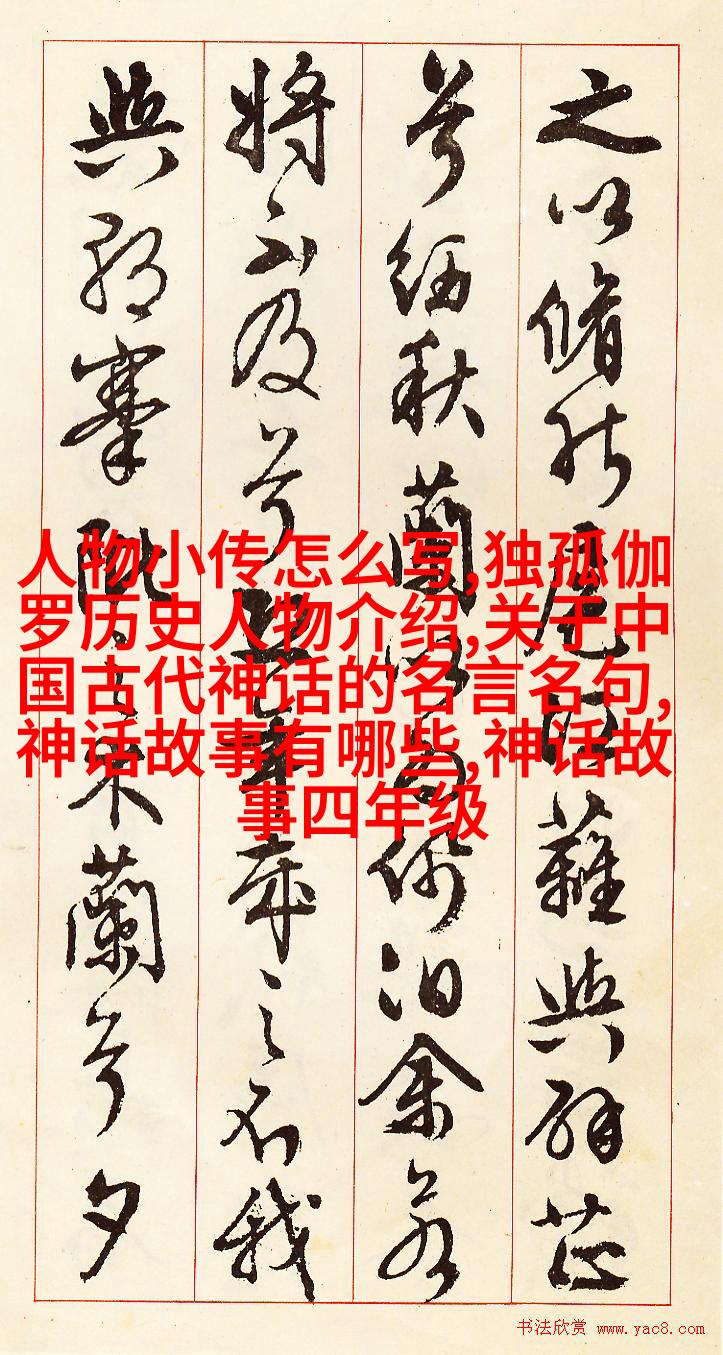 之以脩能扈江蘺與辟芷
兮紉秋蘭以為佩汩余若
將不及兮恐年歲之不我
與朝搴阰之木蘭兮夕
人物小传怎么写,独孤伽
罗历史人物介绍,关于中
国古代神话的名言名句,
神话故事有哪些,神话故
事四年级
书法欣赏 www.yac8.com